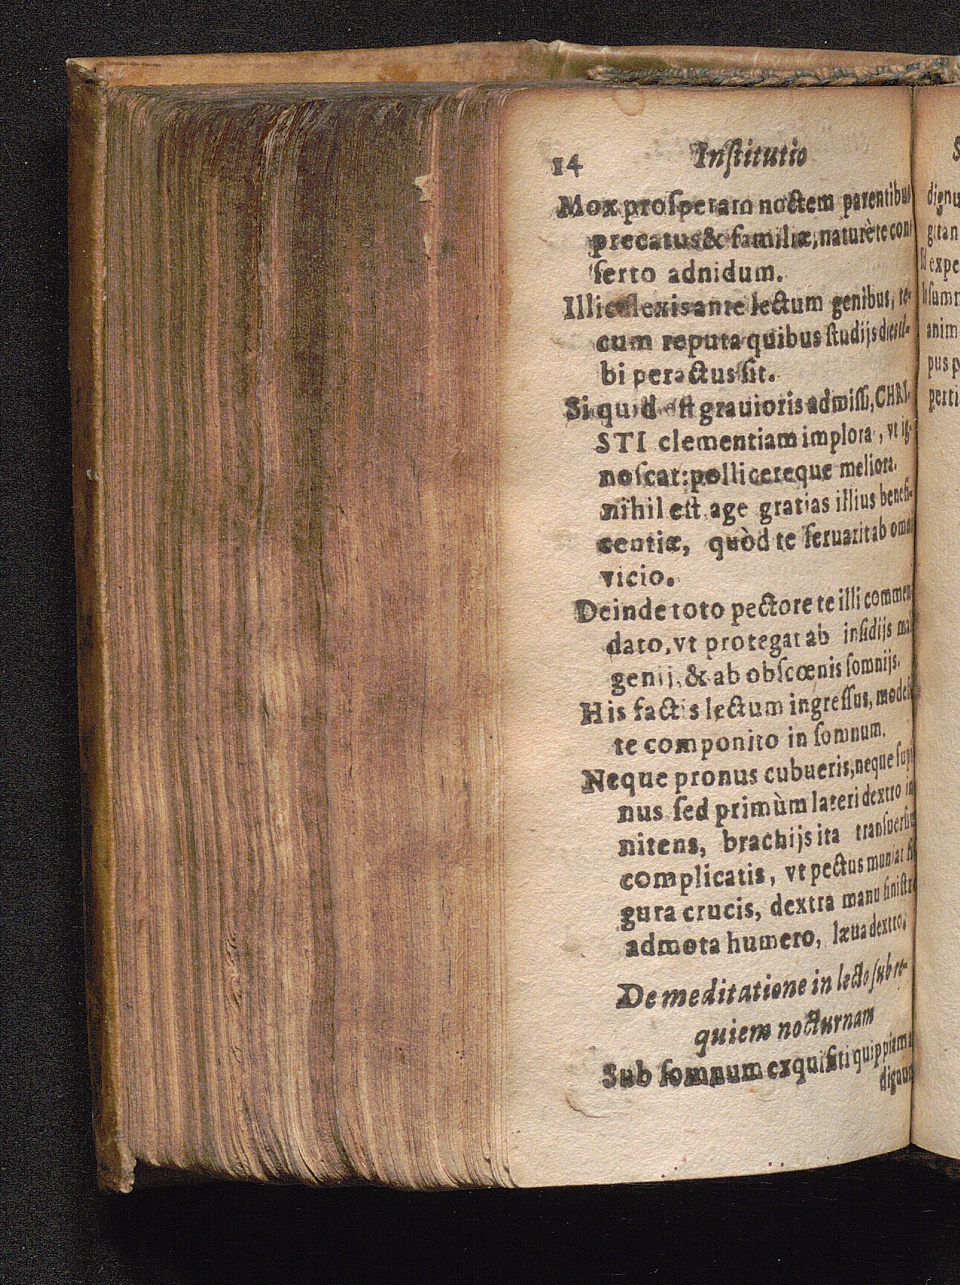 14 Institutio
Mox prosperam noctem parentibus
precatus & familiæ, maturète con
ferto adnidum.
Illic flexis ante lectum genibus, te-
cum reputa quibus studijs dies ti-
bi peractus sit.
Si quid est grauioris admissi, CHRI-
STI clementiam implora, vt ig-
noscat: pollicereque meliora.
nihil est age gratias illius benefi-
centiæ, quòd te seruarit ab omni
vicio.
Deinde toto pectore te illi commen
dato, vt protegat ab insidijs ma
genij, & ab obscœnis somnijs.
His factis lectum ingressus, modes
te componito in somnum.
Neque pronus cubueris, neque supi
nus sed primùm lateri dextro in
nitens, brachijs ita transuersim
complicatis, vt pectus muniat fi
gura crucis, dextra manu sinistro
admota humero, læua dextro.
De meditatione in lecto sub re-
quiem nocturnam
Sub somnum exquisiti quippiam a
dignum
dignu
gitan
expe
sumn
anim
pus p
perti